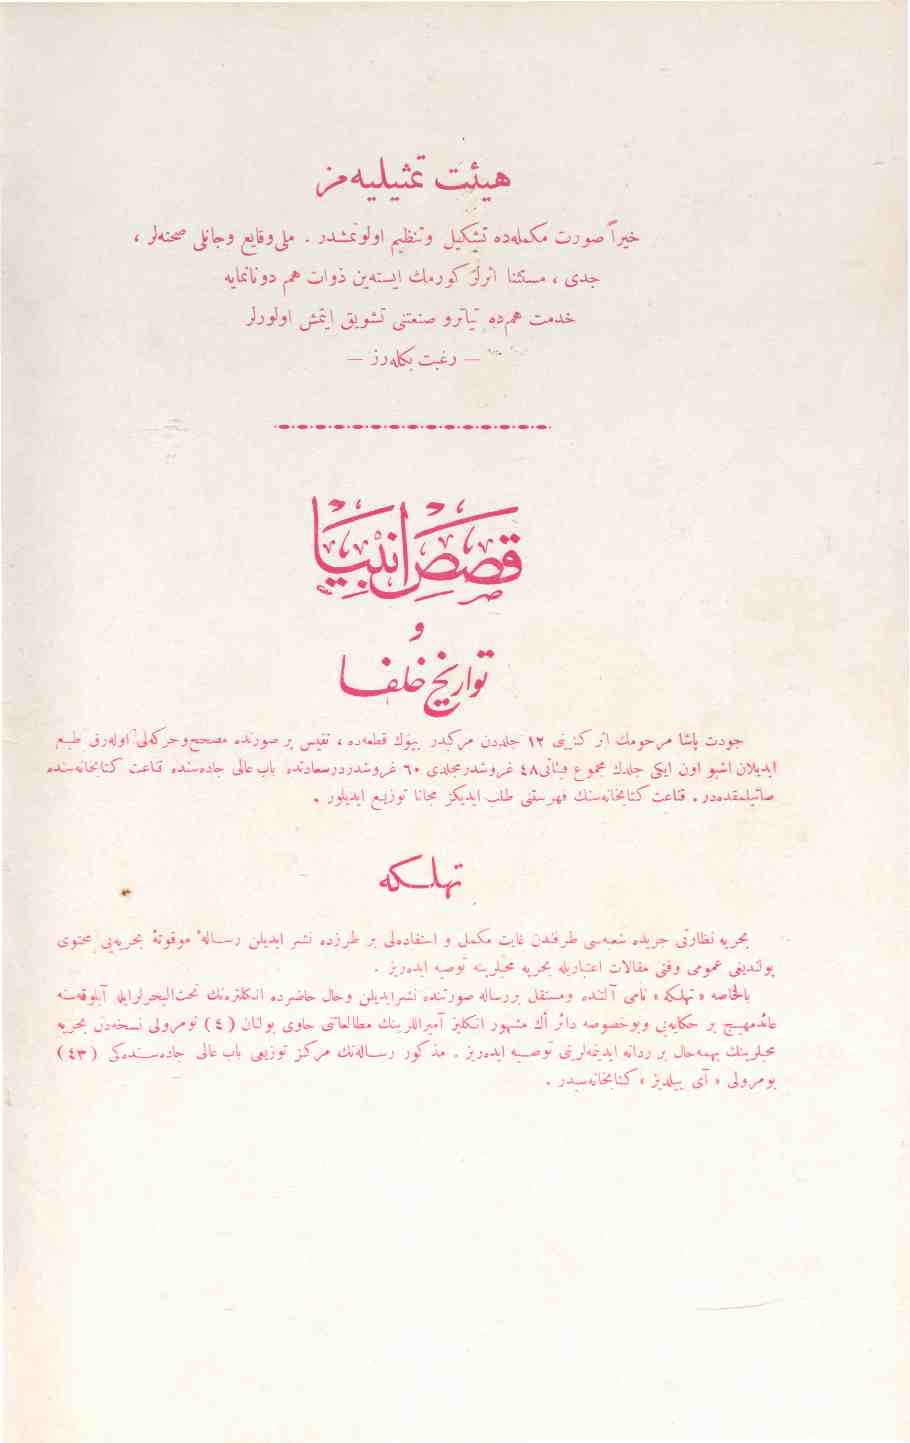 هیئت تمثیلیه‌مز
خیراً صورت مکمله‌ده تشکیل وتنظیم اولونمشدر . ملی وقایع وجانلی صحنه‌لر ،
جدی ، مستثنا اثرلر کورمك ایسته‌ین ذوات هم دونانمایه
خدمت هم‌ده تیاترو صنعتنی تشویق ایتمش اولورلر
— رغبت بکله‌رز —
قصص انبیا
و
تواریخ خلفا
جودت پاشا مرحومك اثر کزینی ۱۲ جلددن مرکبدر بیوك قطعه‌ده ، نفیس بر صورتده مصحح وحرکه‌لی اوله‌رق طبع
ایدیلان اشبو اون ایکی جلدك مجموع فیئاتی ٤٨ غروشدر مجلدی ٦٠ غروشدر درسعادتده باب عالی جاده‌سنده قناعت کتابخانه‌سنده
صاتیلمقده‌در . قناعت کتابخانه‌سنك فهرستنی طلب ایدیکز مجانا توزیع ایدیلور .
تهلکه
بحریه نظارتی جریده شعبه‌سی طرفندن غایت مکمل و استفاده‌لی بر طرزده نشر ایدیلن رسالهٔ موقوتهٔ بحریه‌یی محتوی
بولندیغی عمومی وفنی مقالات اعتباریله بحریه محبلرینه توصیه ایده‌ریز .
بالخاصه « تهلکه » نامی آلتنده ومستقل بررساله صورتنده نشرایدیلن وحال حاضرده انکلتره‌نك تحت‌البحرلرایله آبلوقه‌سنه
عائدمهیج بر حکایه‌یی وبوخصوصه دائر اك مشهور انکلیز آمیراللرینك مطالعاتنی حاوی بولنان ( ٤ ) نومرولی نسخه‌دن بحریه
محبلرینك بهمه‌حال بر ردانه ایدینمه‌لرینی توصیه ایده‌ریز . مذکور رساله‌نك مرکز توزیعی باب عالی جاده‌سنده‌کی ( ٤٣ )
نومرولی « آی ییلدیز » کتابخانه‌سیدر .